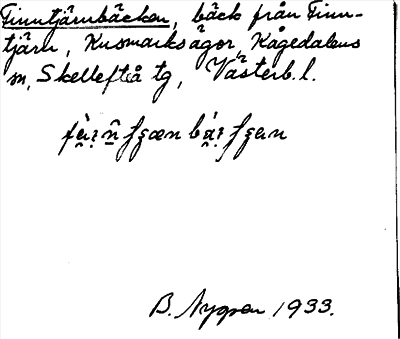 Finntjärnbäcken, bäck från Finn-
tjärn, Kusmarks ägor, Kågedalens
m, Skellefteå tg, Västerb. l.
B. Nygren 1933.